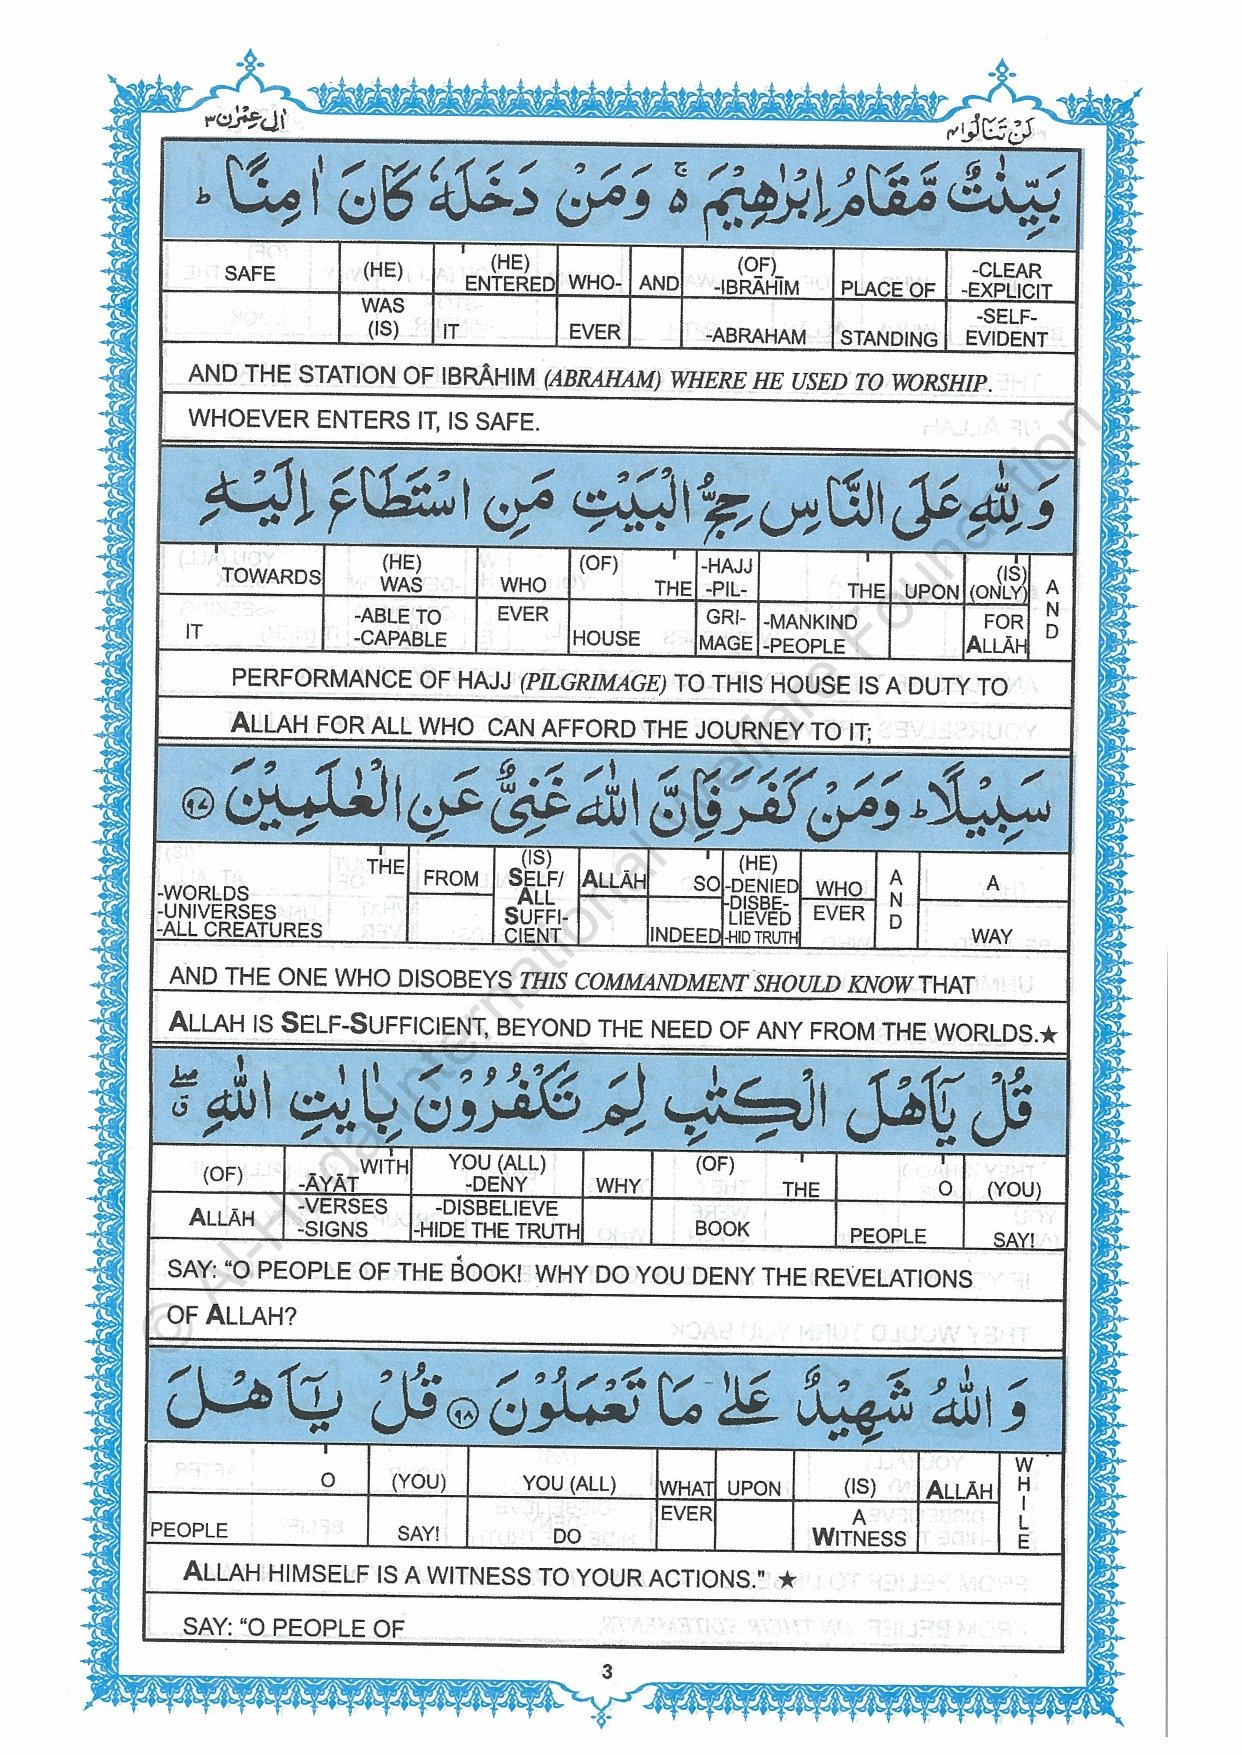 اٰل عِمْرٰن ٣
لَنْ تَنَالُوا ٤
بَيِّنٰتٌ مَّقَامُ اِبْرٰهِيْمَ ۚ۬ وَمَنْ دَخَلَهٗ كَانَ اٰمِنًا ؕ
SAFE (HE) (HE) WHO- AND (OF) PLACE OF -CLEAR
WAS ENTERED EVER -IBRĀHĪM STANDING -EXPLICIT
(IS) IT -ABRAHAM -SELF-
EVIDENT
AND THE STATION OF IBRÂHIM (ABRAHAM) WHERE HE USED TO WORSHIP.
WHOEVER ENTERS IT, IS SAFE.
وَ لِلّٰهِ عَلَى النَّاسِ حِجُّ الْبَيْتِ مَنِ اسْتَطَاعَ اِلَيْهِ
TOWARDS (HE) WHO (OF) THE -HAJJ THE UPON (IS) AND
IT WAS EVER HOUSE -PIL- -MANKIND (ONLY)
-ABLE TO GRI- -PEOPLE FOR
-CAPABLE MAGE ALLĀH
PERFORMANCE OF HAJJ (PILGRIMAGE) TO THIS HOUSE IS A DUTY TO
ALLAH FOR ALL WHO CAN AFFORD THE JOURNEY TO IT;
سَبِيْلًا ؕ وَمَنْ كَفَرَ فَاِنَّ اللّٰهَ غَنِىٌّ عَنِ الْعٰلَمِيْنَ ٩٧
THE FROM (IS) ALLĀH SO (HE) WHO AND A
-WORLDS SELF/ INDEED -DENIED EVER WAY
-UNIVERSES ALL -DISBE-
-ALL CREATURES SUFFI- LIEVED
CIENT -HID TRUTH
AND THE ONE WHO DISOBEYS THIS COMMANDMENT SHOULD KNOW THAT
ALLAH IS SELF-SUFFICIENT, BEYOND THE NEED OF ANY FROM THE WORLDS.★
قُلْ يٰۤاَهْلَ الْكِتٰبِ لِمَ تَكْفُرُوْنَ بِاٰيٰتِ اللّٰهِ ۖۗ
(OF) WITH YOU (ALL) WHY (OF) THE O (YOU)
ALLĀH -ĀYĀT -DENY BOOK PEOPLE SAY!
-VERSES -DISBELIEVE
-SIGNS -HIDE THE TRUTH
SAY: “O PEOPLE OF THE BOOK! WHY DO YOU DENY THE REVELATIONS
OF ALLAH?
وَ اللّٰهُ شَهِيْدٌ عَلٰى مَا تَعْمَلُوْنَ ٩٨ قُلْ يٰۤاَهْلَ
O (YOU) YOU (ALL) WHAT UPON (IS) ALLĀH WHILE
PEOPLE SAY! DO EVER A
WITNESS
ALLAH HIMSELF IS A WITNESS TO YOUR ACTIONS." ★
SAY: “O PEOPLE OF
3
© Al-Huda International Welfare Foundation